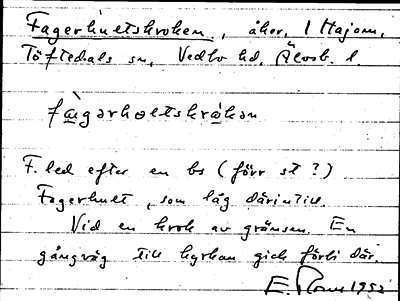 Fagerhultskroken, åker, 1 Hajom,
Töftedals sn, Vedbo hd, Älvsb. l.
fàgərhəltskrákən
F. led efter en bs (förr st?)
Fagerhult, som låg därintill.
Vid en krok av gränsen. En
gångväg till kyrkan gick förbi där.
E. 1952